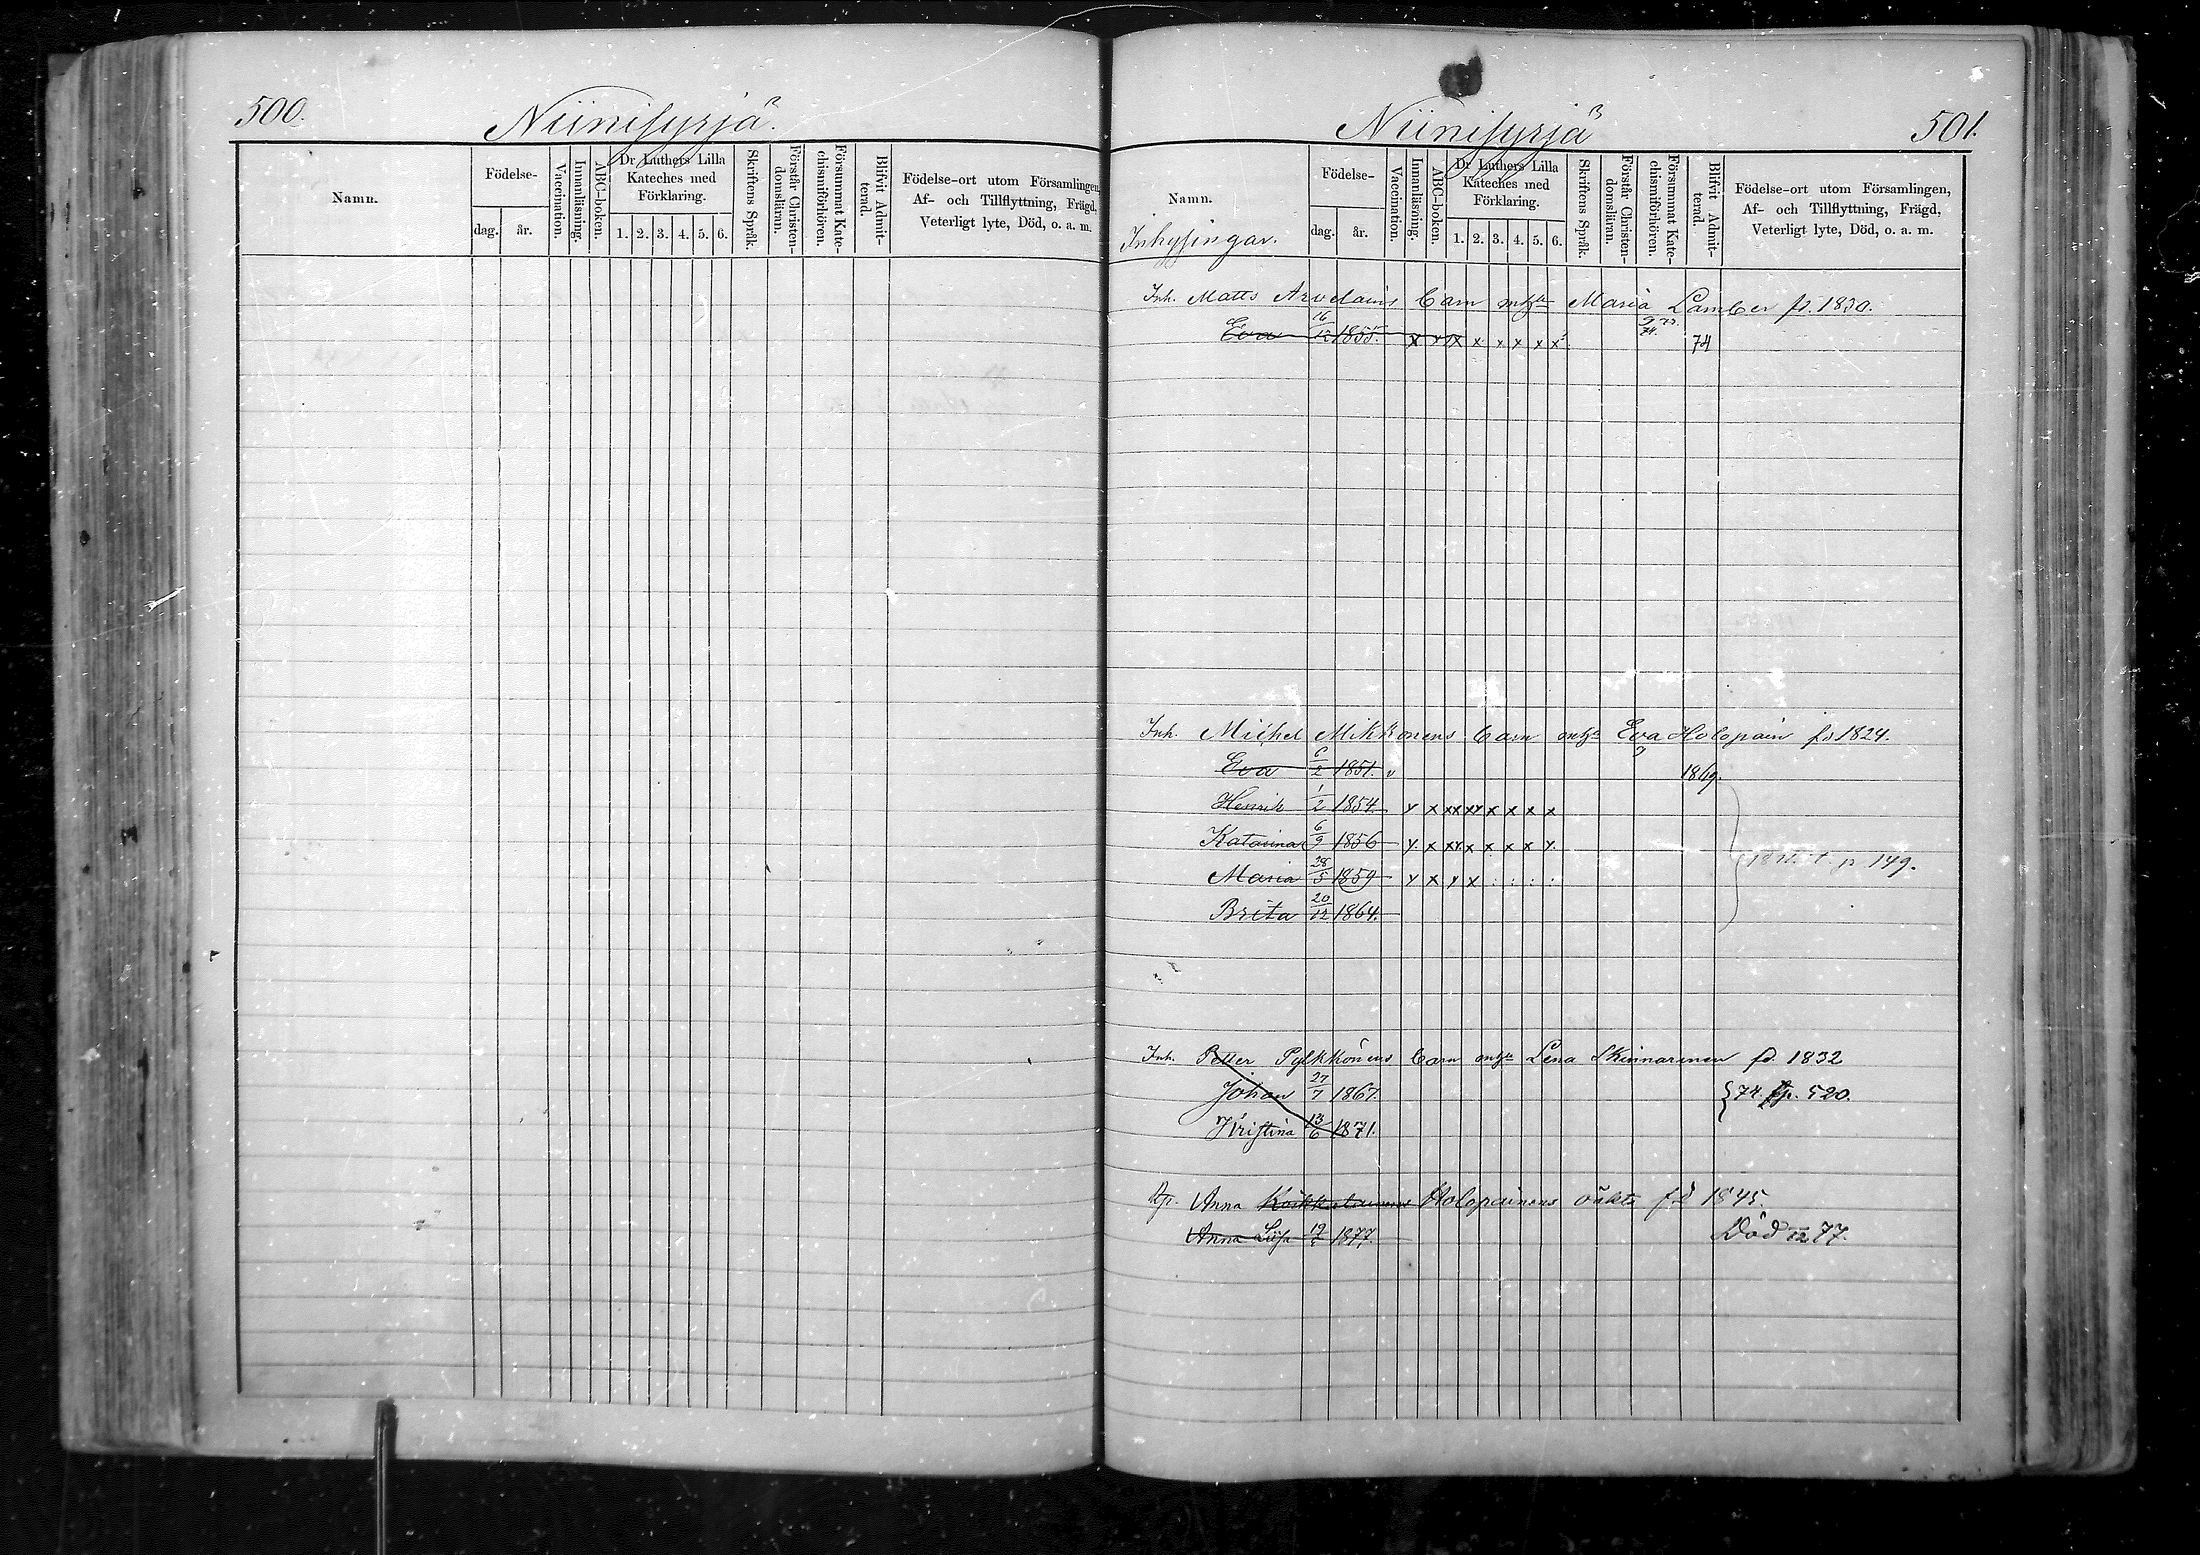 500.
Niinisyrjä.
Namn.
Födelse-
dag. år.
Vaccination.
Innanläsning.
ABC-boken.
Dr Luthers Lilla
Kateches med
Förklaring.
1. 2. 3. 4. 5. 6.
Skriftens Språk.
Förstår Christen-
domsläran.
Försummat Kate-
chismiförhören.
Blifvit Admit-
terad.
Födelse-ort utom Församlingen,
Af- och Tillflyttning, Frägd,
Veterligt lyte, Död, o. a. m.
Niinisyrjä
501.
Namn.
Inhysingar.
Födelse-
dag. år.
Vaccination.
Innanläsning.
ABC-boken.
Dr Luthers Lilla
Kateches med
Förklaring.
1. 2. 3. 4. 5. 6.
Skriftens Språk.
Förstår Christen-
domsläran.
Försummat Kate-
chismiförhören.
Blifvit Admit-
terad.
Födelse-ort utom Församlingen,
Af- och Tillflyttning, Frägd,
Veterligt lyte, Död, o. a. m.
Inh. Matts Arvelains barn Maria Lamber 1830.
Eva 16/12 1855. x x x x x x x x 74
Inh. Michel Mikkonens barn Eva Holopain 1824.
Eva 6/2 1851. v 1869.
Henrik 1/2 1854. x x xx xx x x x x
Katarina 6/9 1856 x x xx x x x x x
p 149.
Maria 28/5 1859 x x x x : : : :
Brita 20/12 1864.
Inh. Petter Pylkkönens barn Lena Skinnarinen 1832
Johan 27/7 1867. 74. p. 520.
Kristina 13/6 1871.
Anna Holopainens oäkta 1845.
Anna Lisa 1877. Död 77.